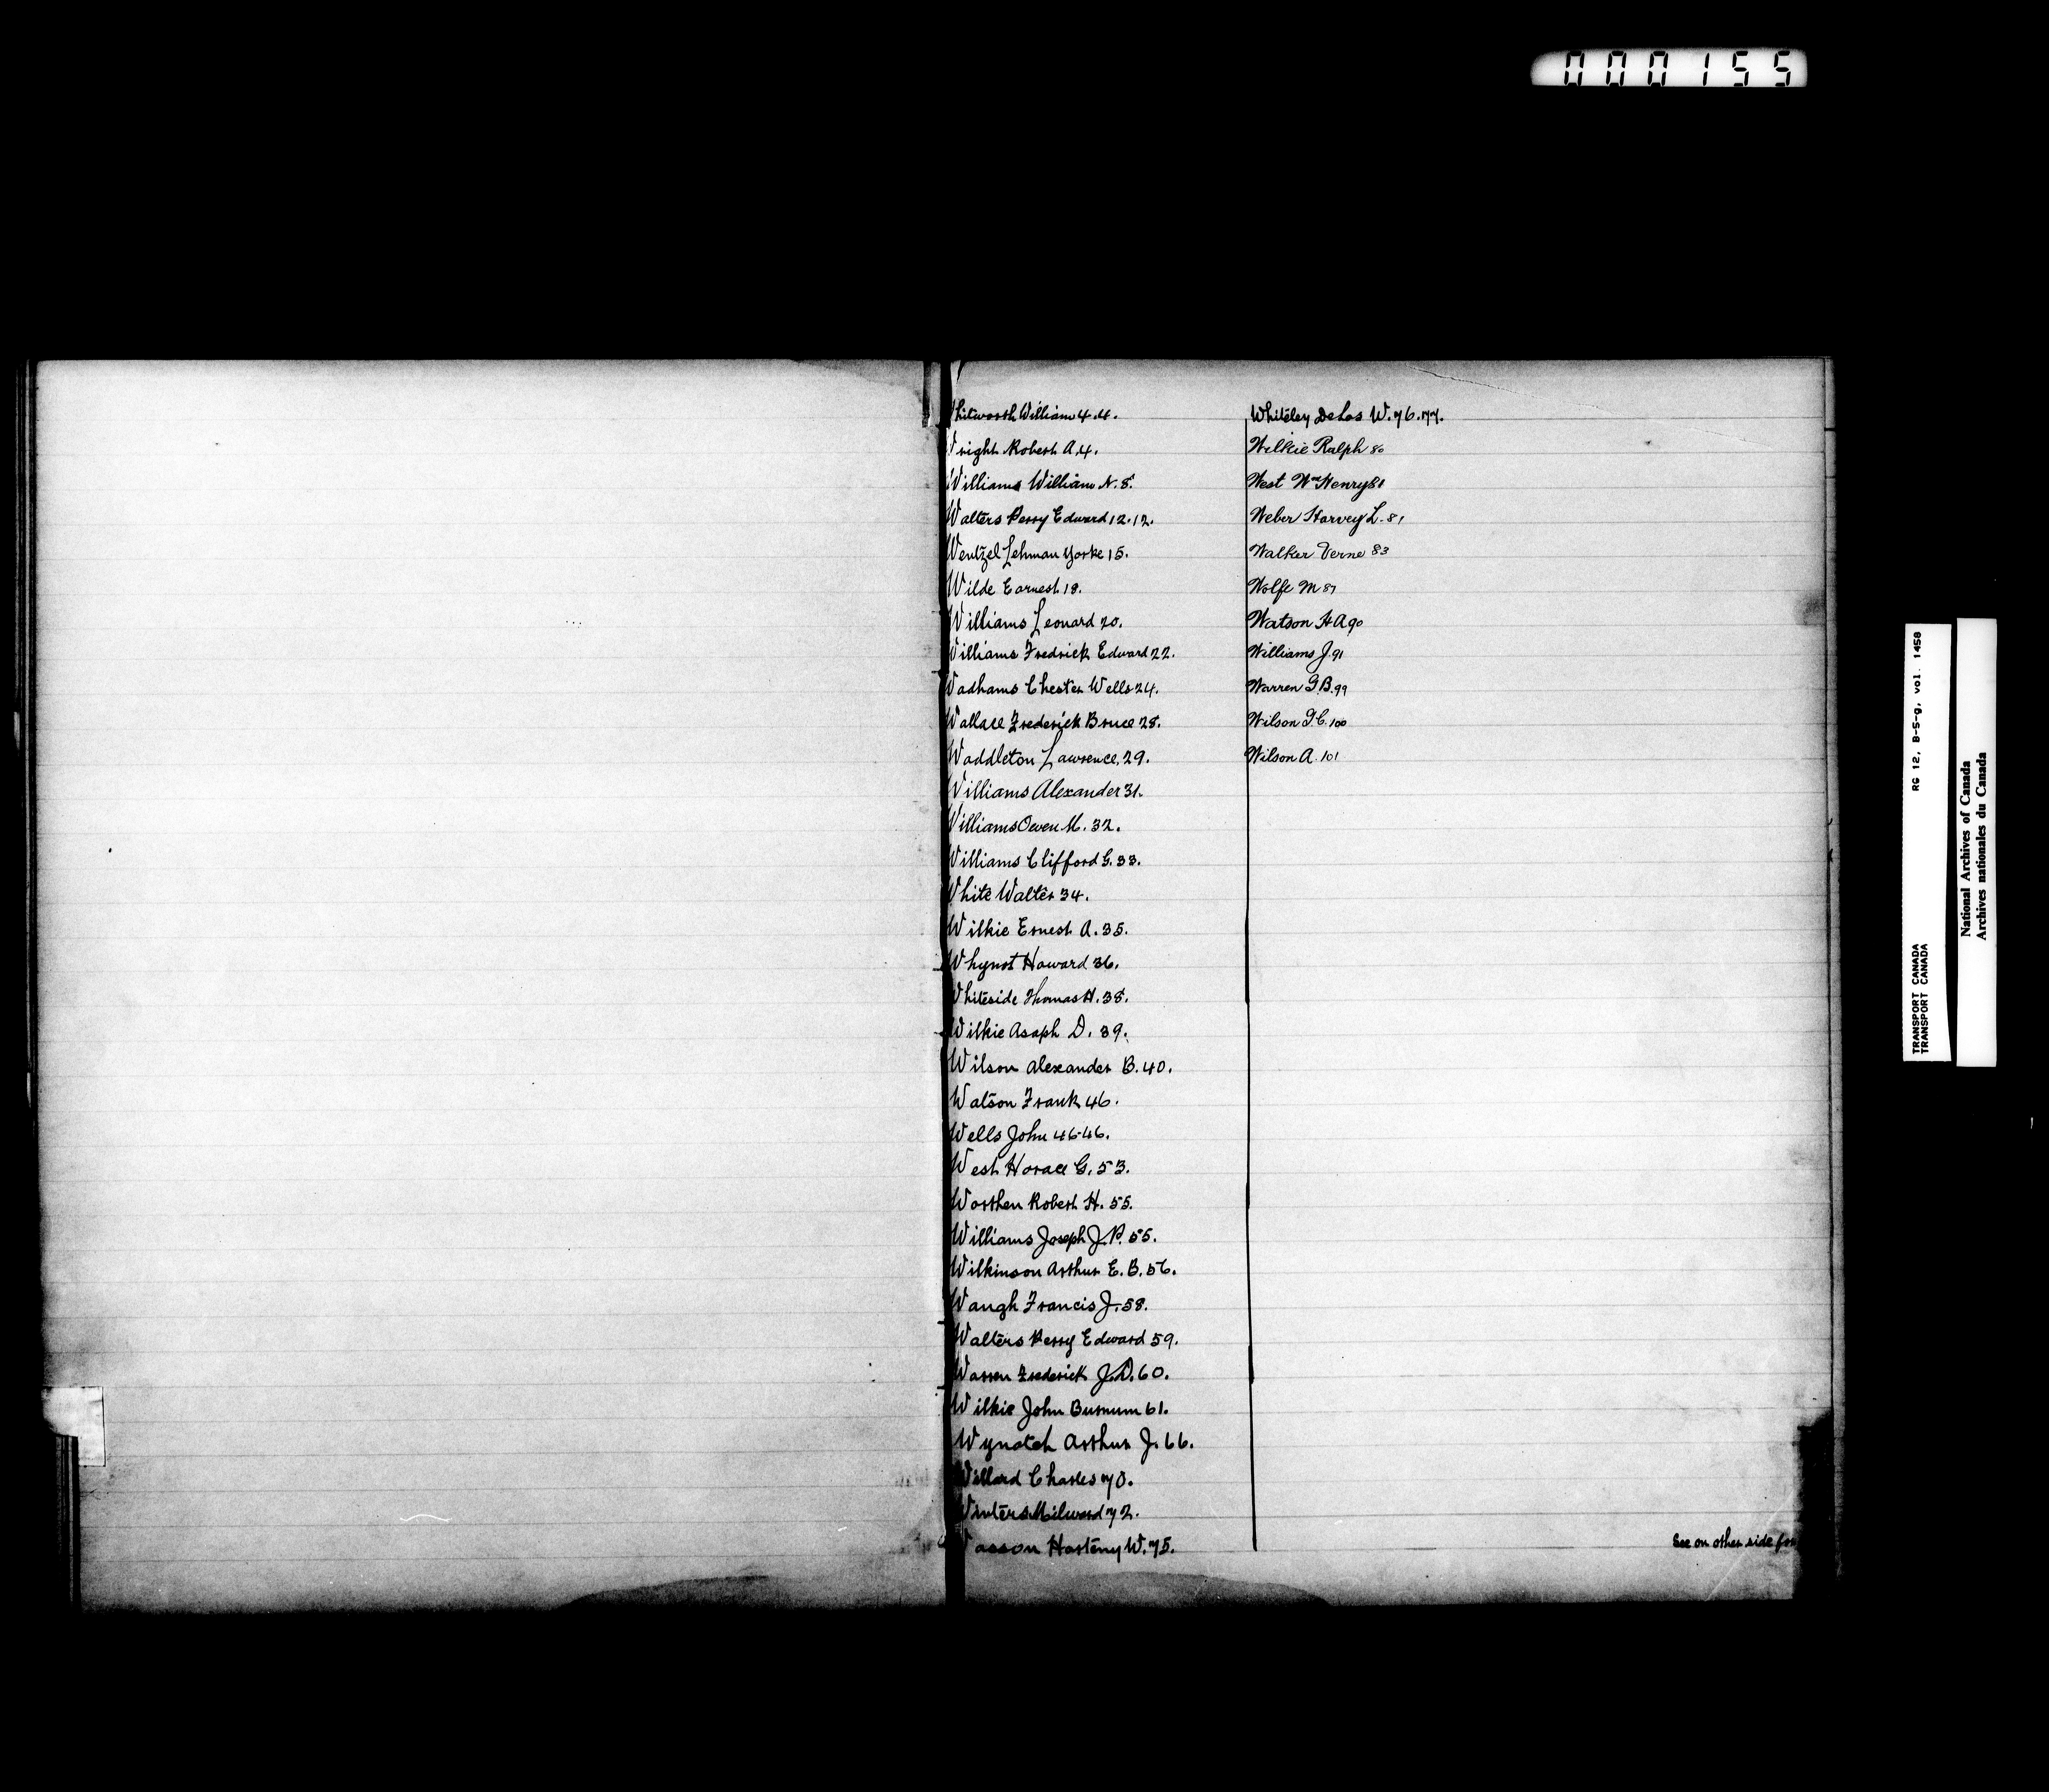 000155
Whitworth William 4.4.
Wright Robert A. 4.
Williams William N. 8.
Walters Perry Edward 12.12.
Wentzel Lehman Yorke 15.
Wilde Earnest 18.
Williams Leonard 20.
Williams Fredrick Edward 22.
Wadhams Chester Wells 24.
Wallace Frederick Bruce 28.
Waddleton Lawrence. 29.
Williams Alexander 31.
Williams Owen M. 32.
Williams Clifford G. 33.
White Walter 34.
Wilkie Ernest A. 35.
Whynot Howard 36.
Whiteside Thomas H. 38.
Wilkie Asaph D. 39.
Wilson Alexander B. 40.
Watson Frank 46.
Wells John 46-46.
West Horace G. 53.
Worthen Robert H. 55.
Williams Joseph J. P. 55.
Wilkinson Arthur E. B. 56.
Waugh Francis J. 58.
Walters Perry Edward 59.
Warren Frederick J. D. 60.
Wilkie John Burnum 61.
Wynatch Arthur J. 66.
Willard Charles 70.
Winters Milward 72.
Wasson W. 75.
Whiteley DeLos W. 76.77.
Wilkie Ralph 80
West Wm Henry 81
Weber Harvey L. 81
Walker Verne 83
Wolfe M 87
Watson H A 90
Williams J. 91
Warren G. B. 99
Wilson G. C. 100
Wilson A. 101
See on other side for
RG 12, B-5-g, vol. 1458
TRANSPORT CANADA
TRANSPORT CANADA
National Archives of Canada
Archives nationales du Canada